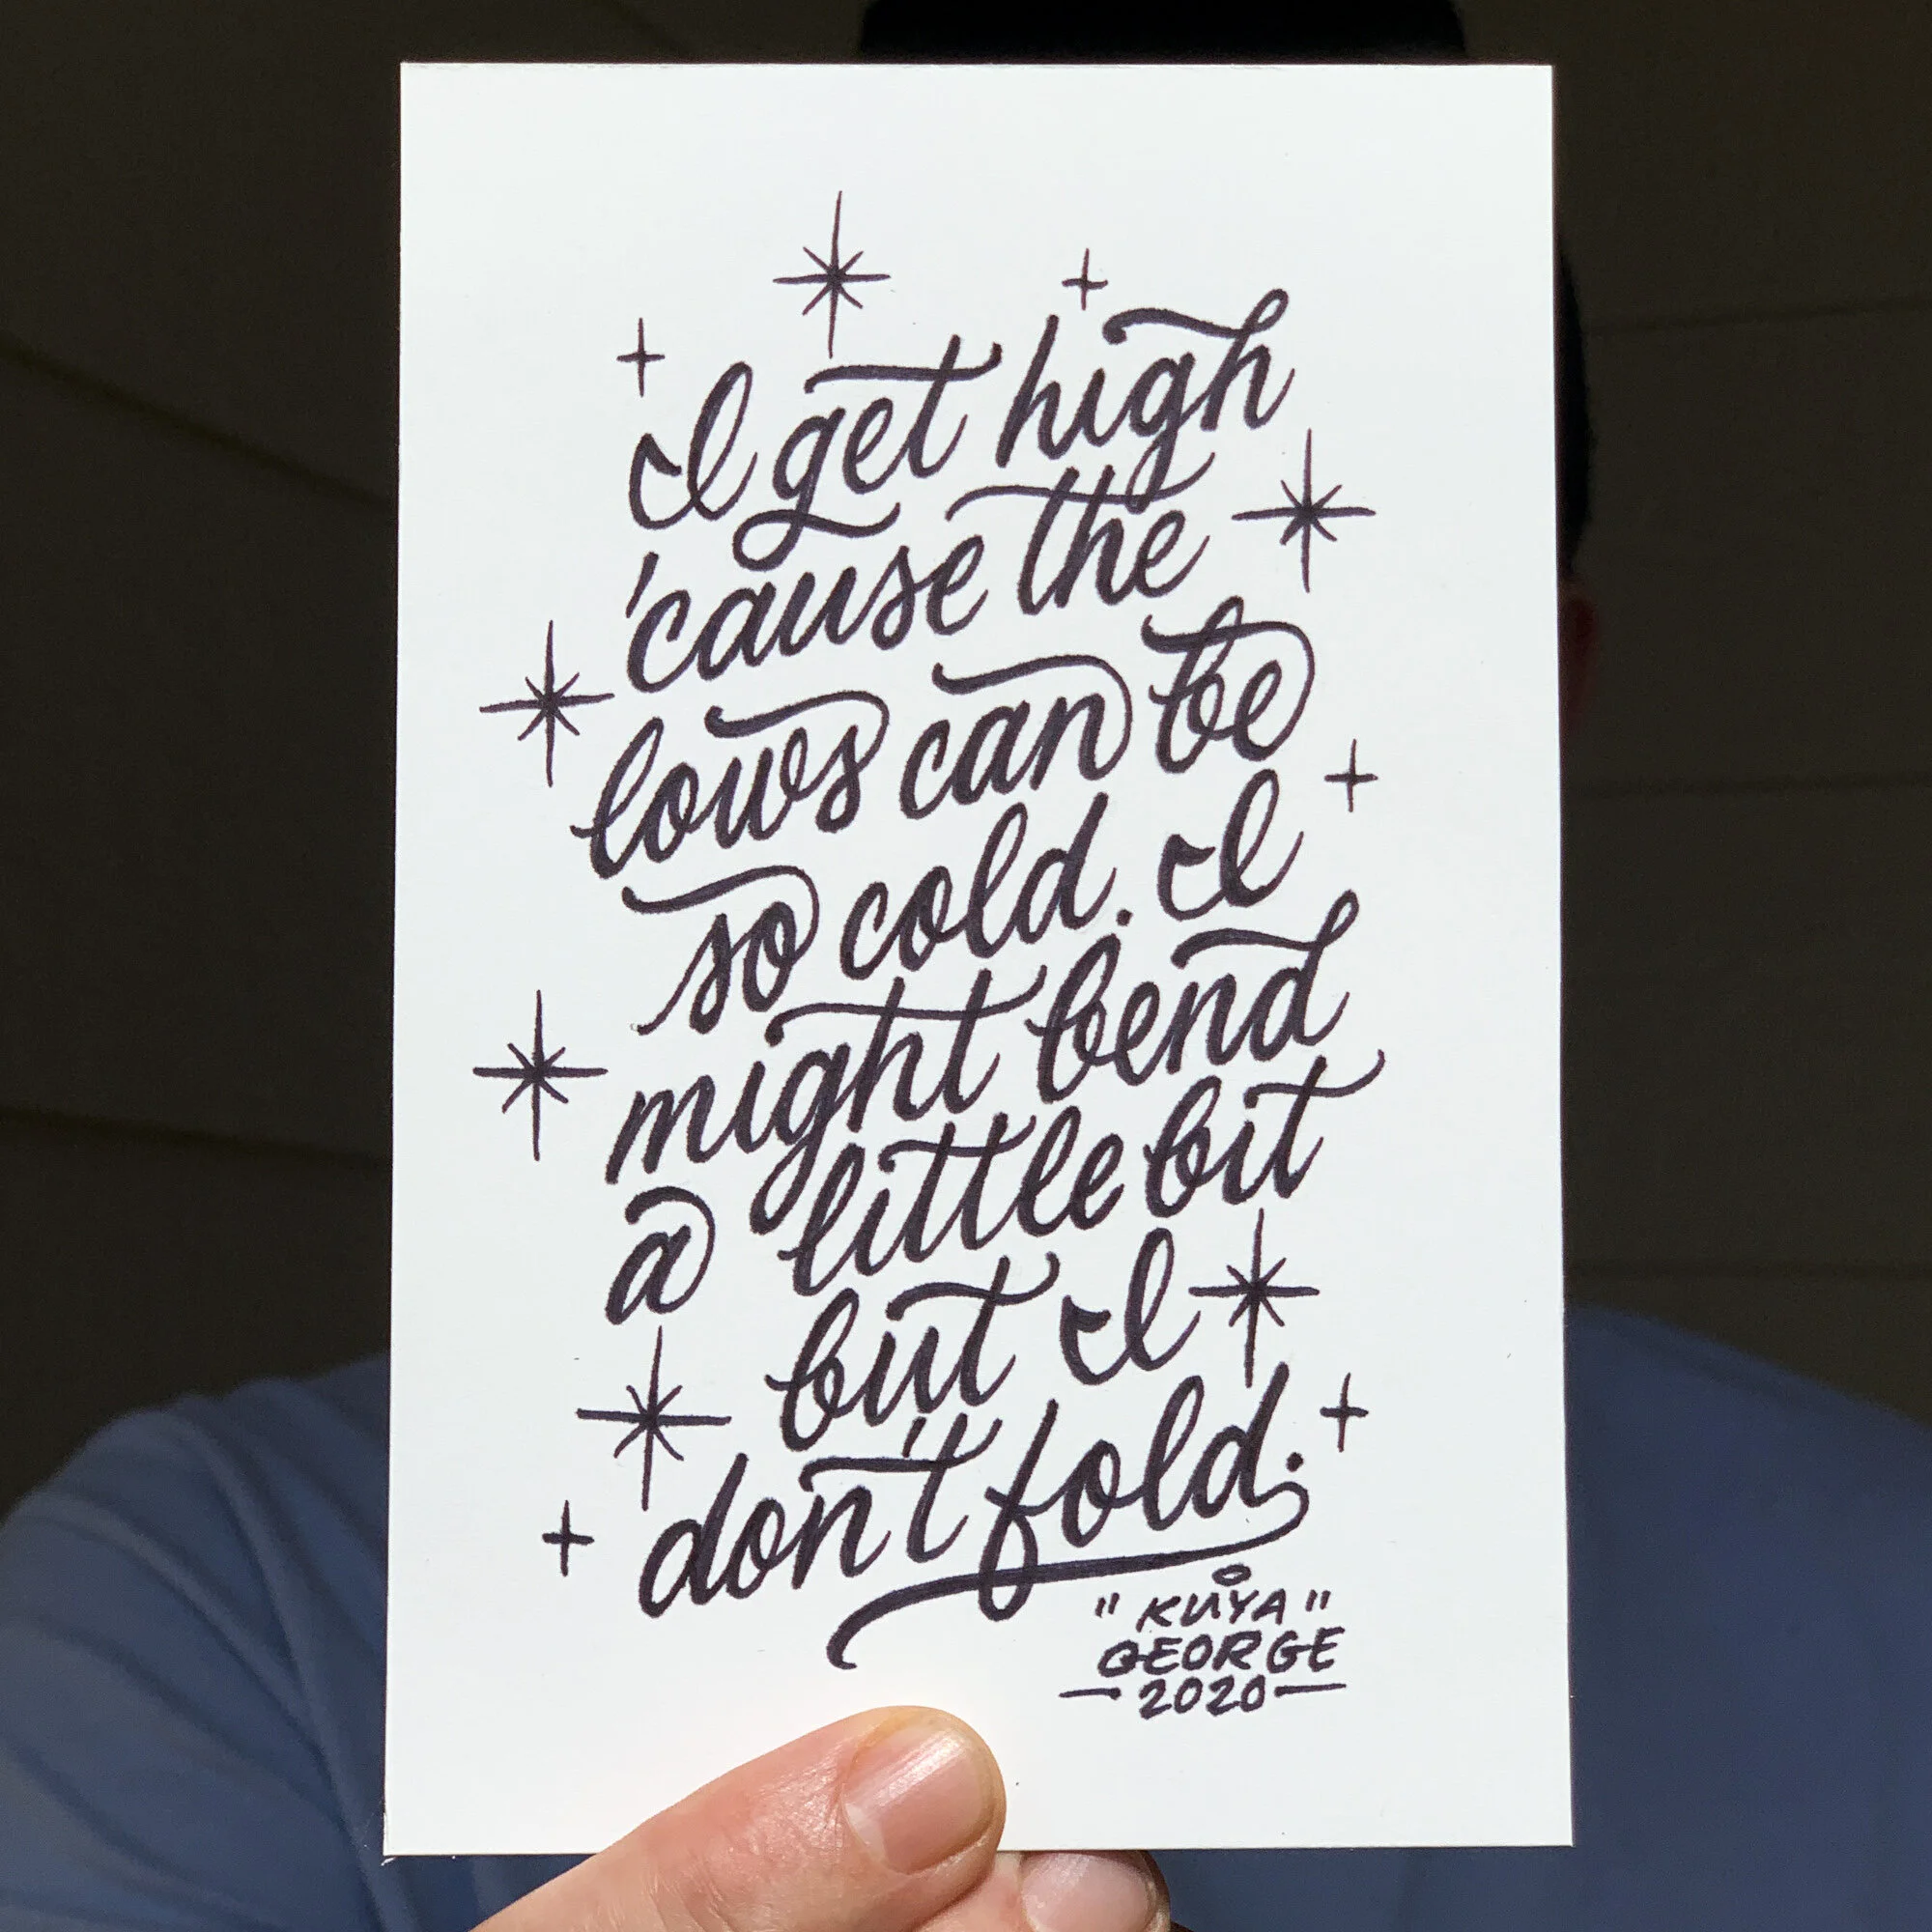 I get high
'cause the
lows can be
so cold. I
might bend
a little bit
but I
don't fold.
"KUYA"
GEORGE
—2020—